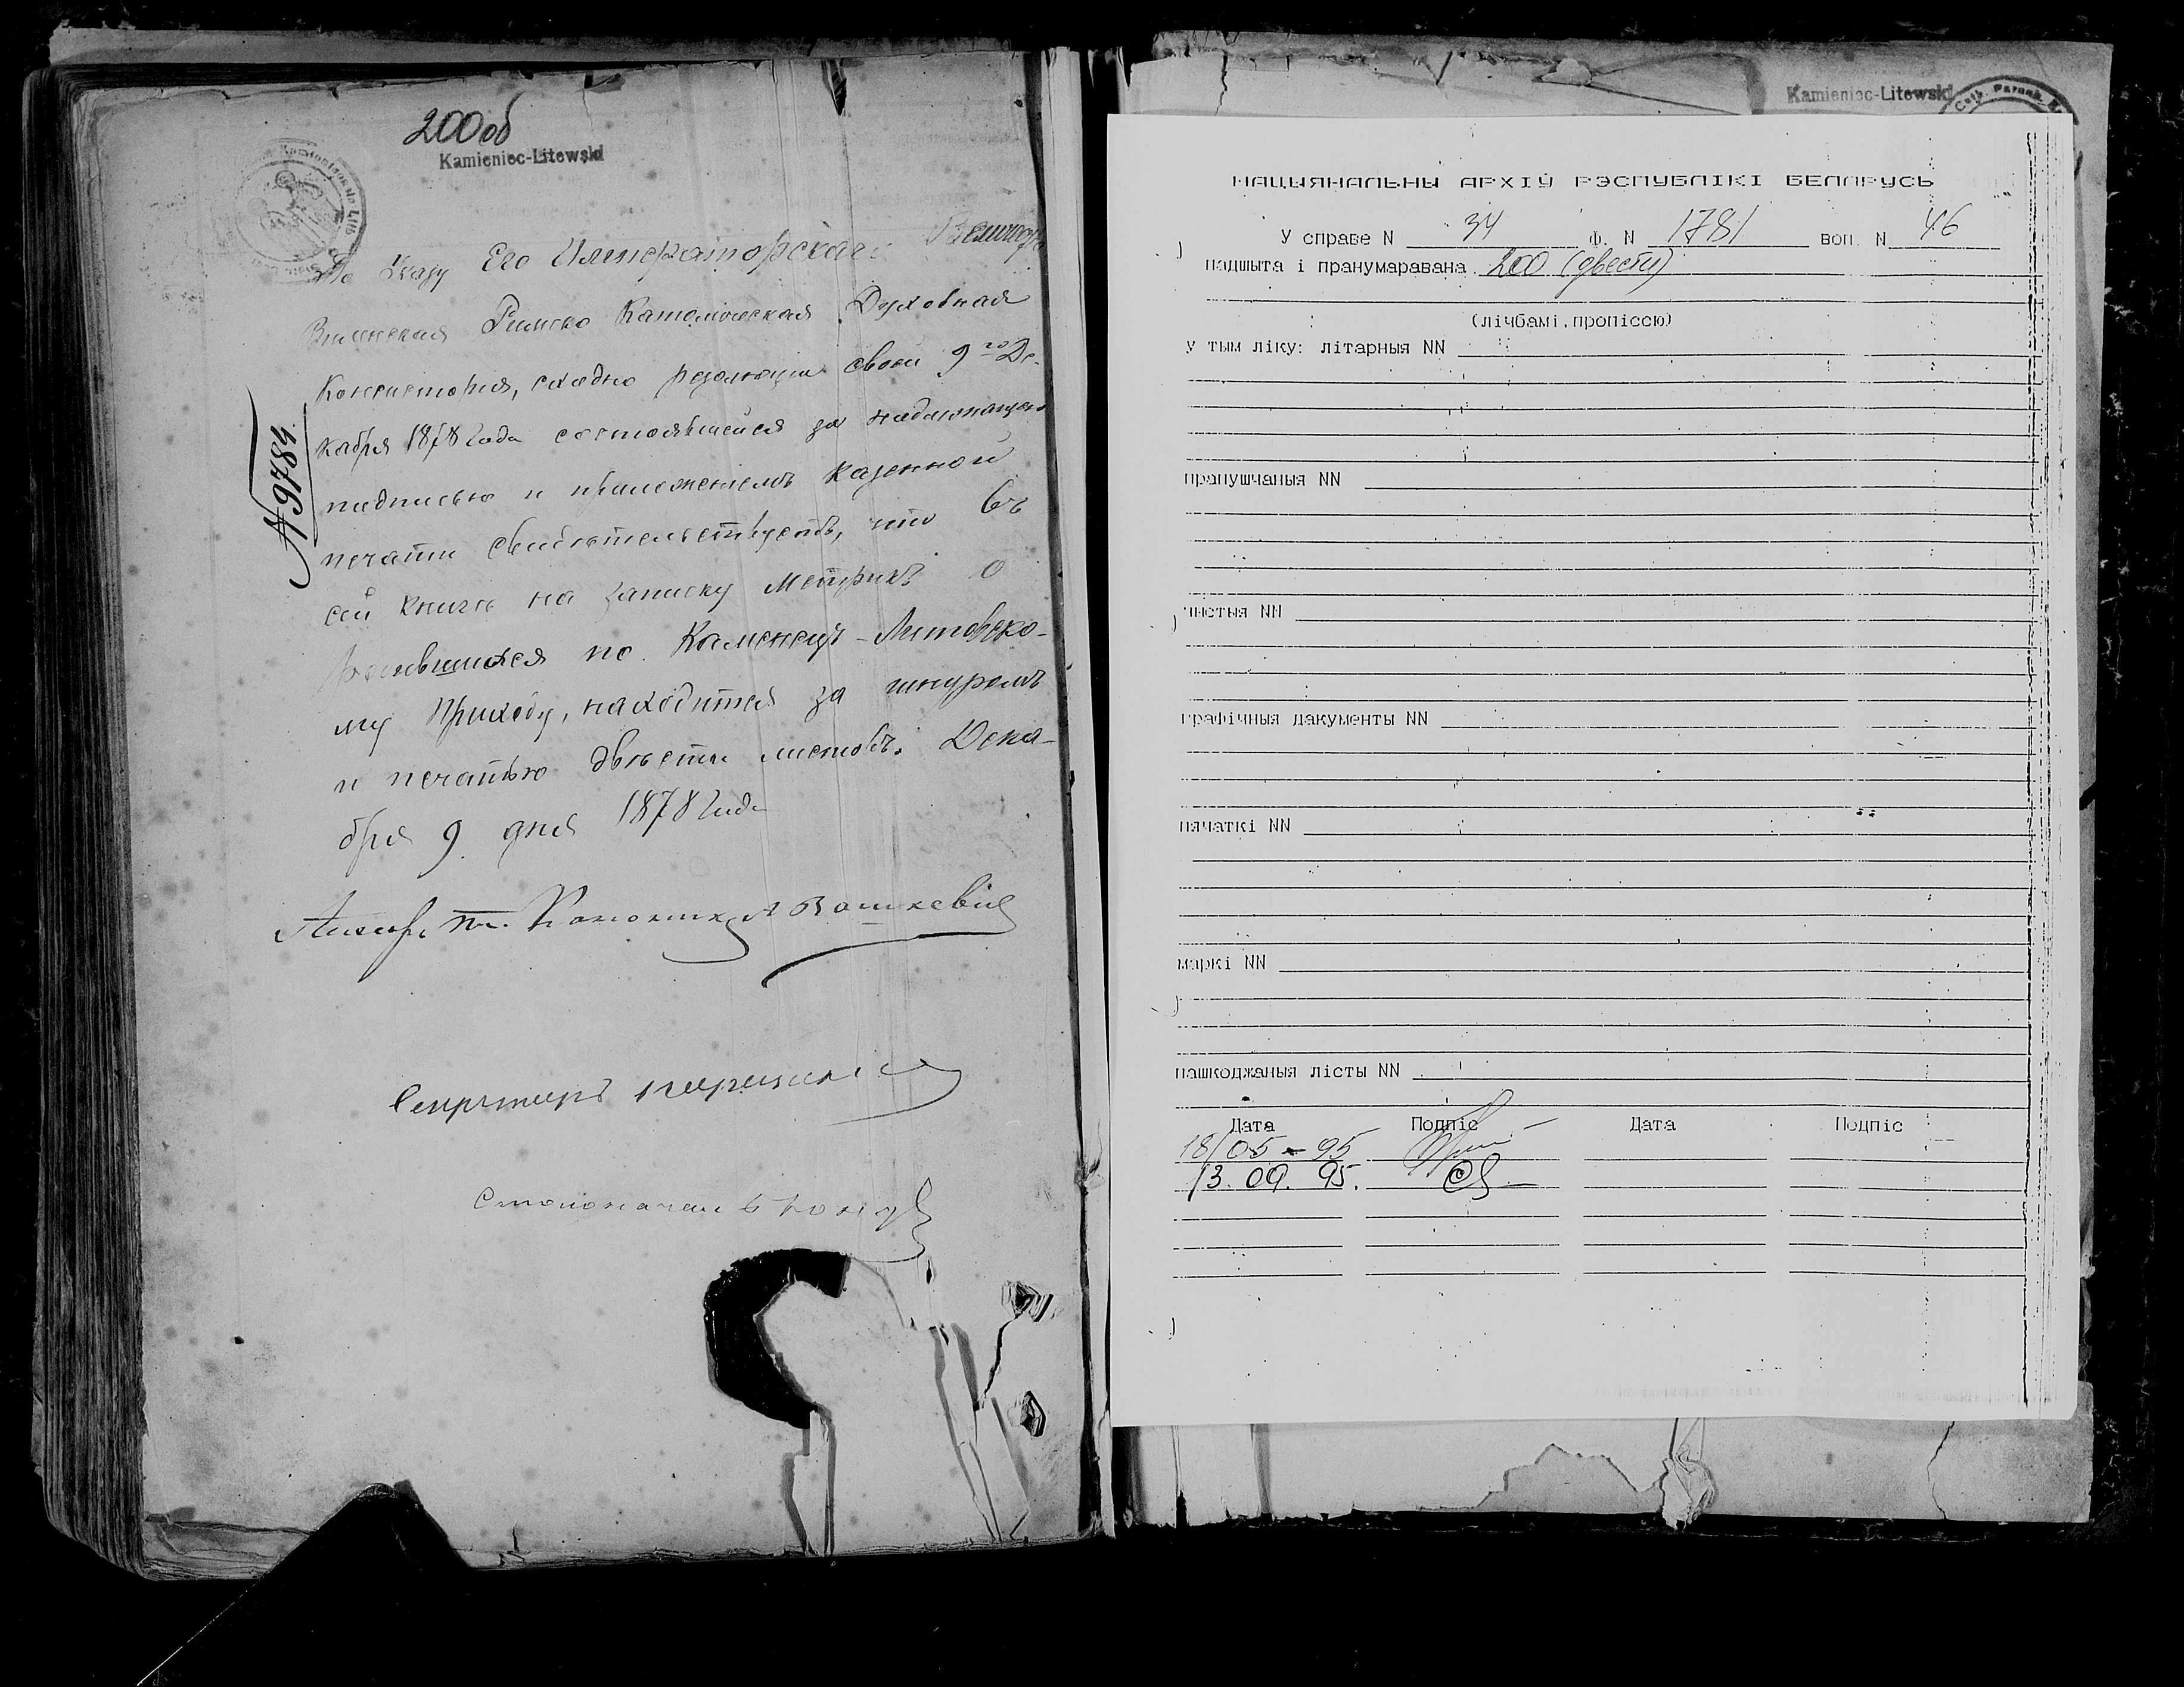 200 об
Kamieniec-Litewski
По Указу Его Императорскаго Величества
Виленская Римско Католическая Духовная
Консисторія, сходно резолюціи своей 9го Де-
кабря 1878 года состоявшейся за надлежащею
подписью и приложеніемъ казенной
печати свидѣтельствуетъ, что въ
сей книгѣ на записку метрикъ о
родившихся по Каменецъ-Литовско-
му приходу, находится за шнуромъ
и печатью двѣсти листовъ. Дека-
бря 9 дня 1878 года
№ 9784
Каноникъ
Секретарь
Столоначальникъ
Kamieniec-Litewski
НАЦЫЯНАЛЬНЫ АРХІЎ РЭСПУБЛІКІ БЕЛАРУСЬ
У справе N 34 Ф. N 1781 воп. N 46
падшыта і пранумаравана 200 (двести)
(лічбамі, пропіссю)
у тым ліку: літарныя NN
прапушчаныя NN
чыстыя NN
графічныя дакументы NN
пячаткі NN
маркі NN
пашкоджаныя лісты NN
Дата Подпіс Дата Подпіс
18/05-95
13.09.95.